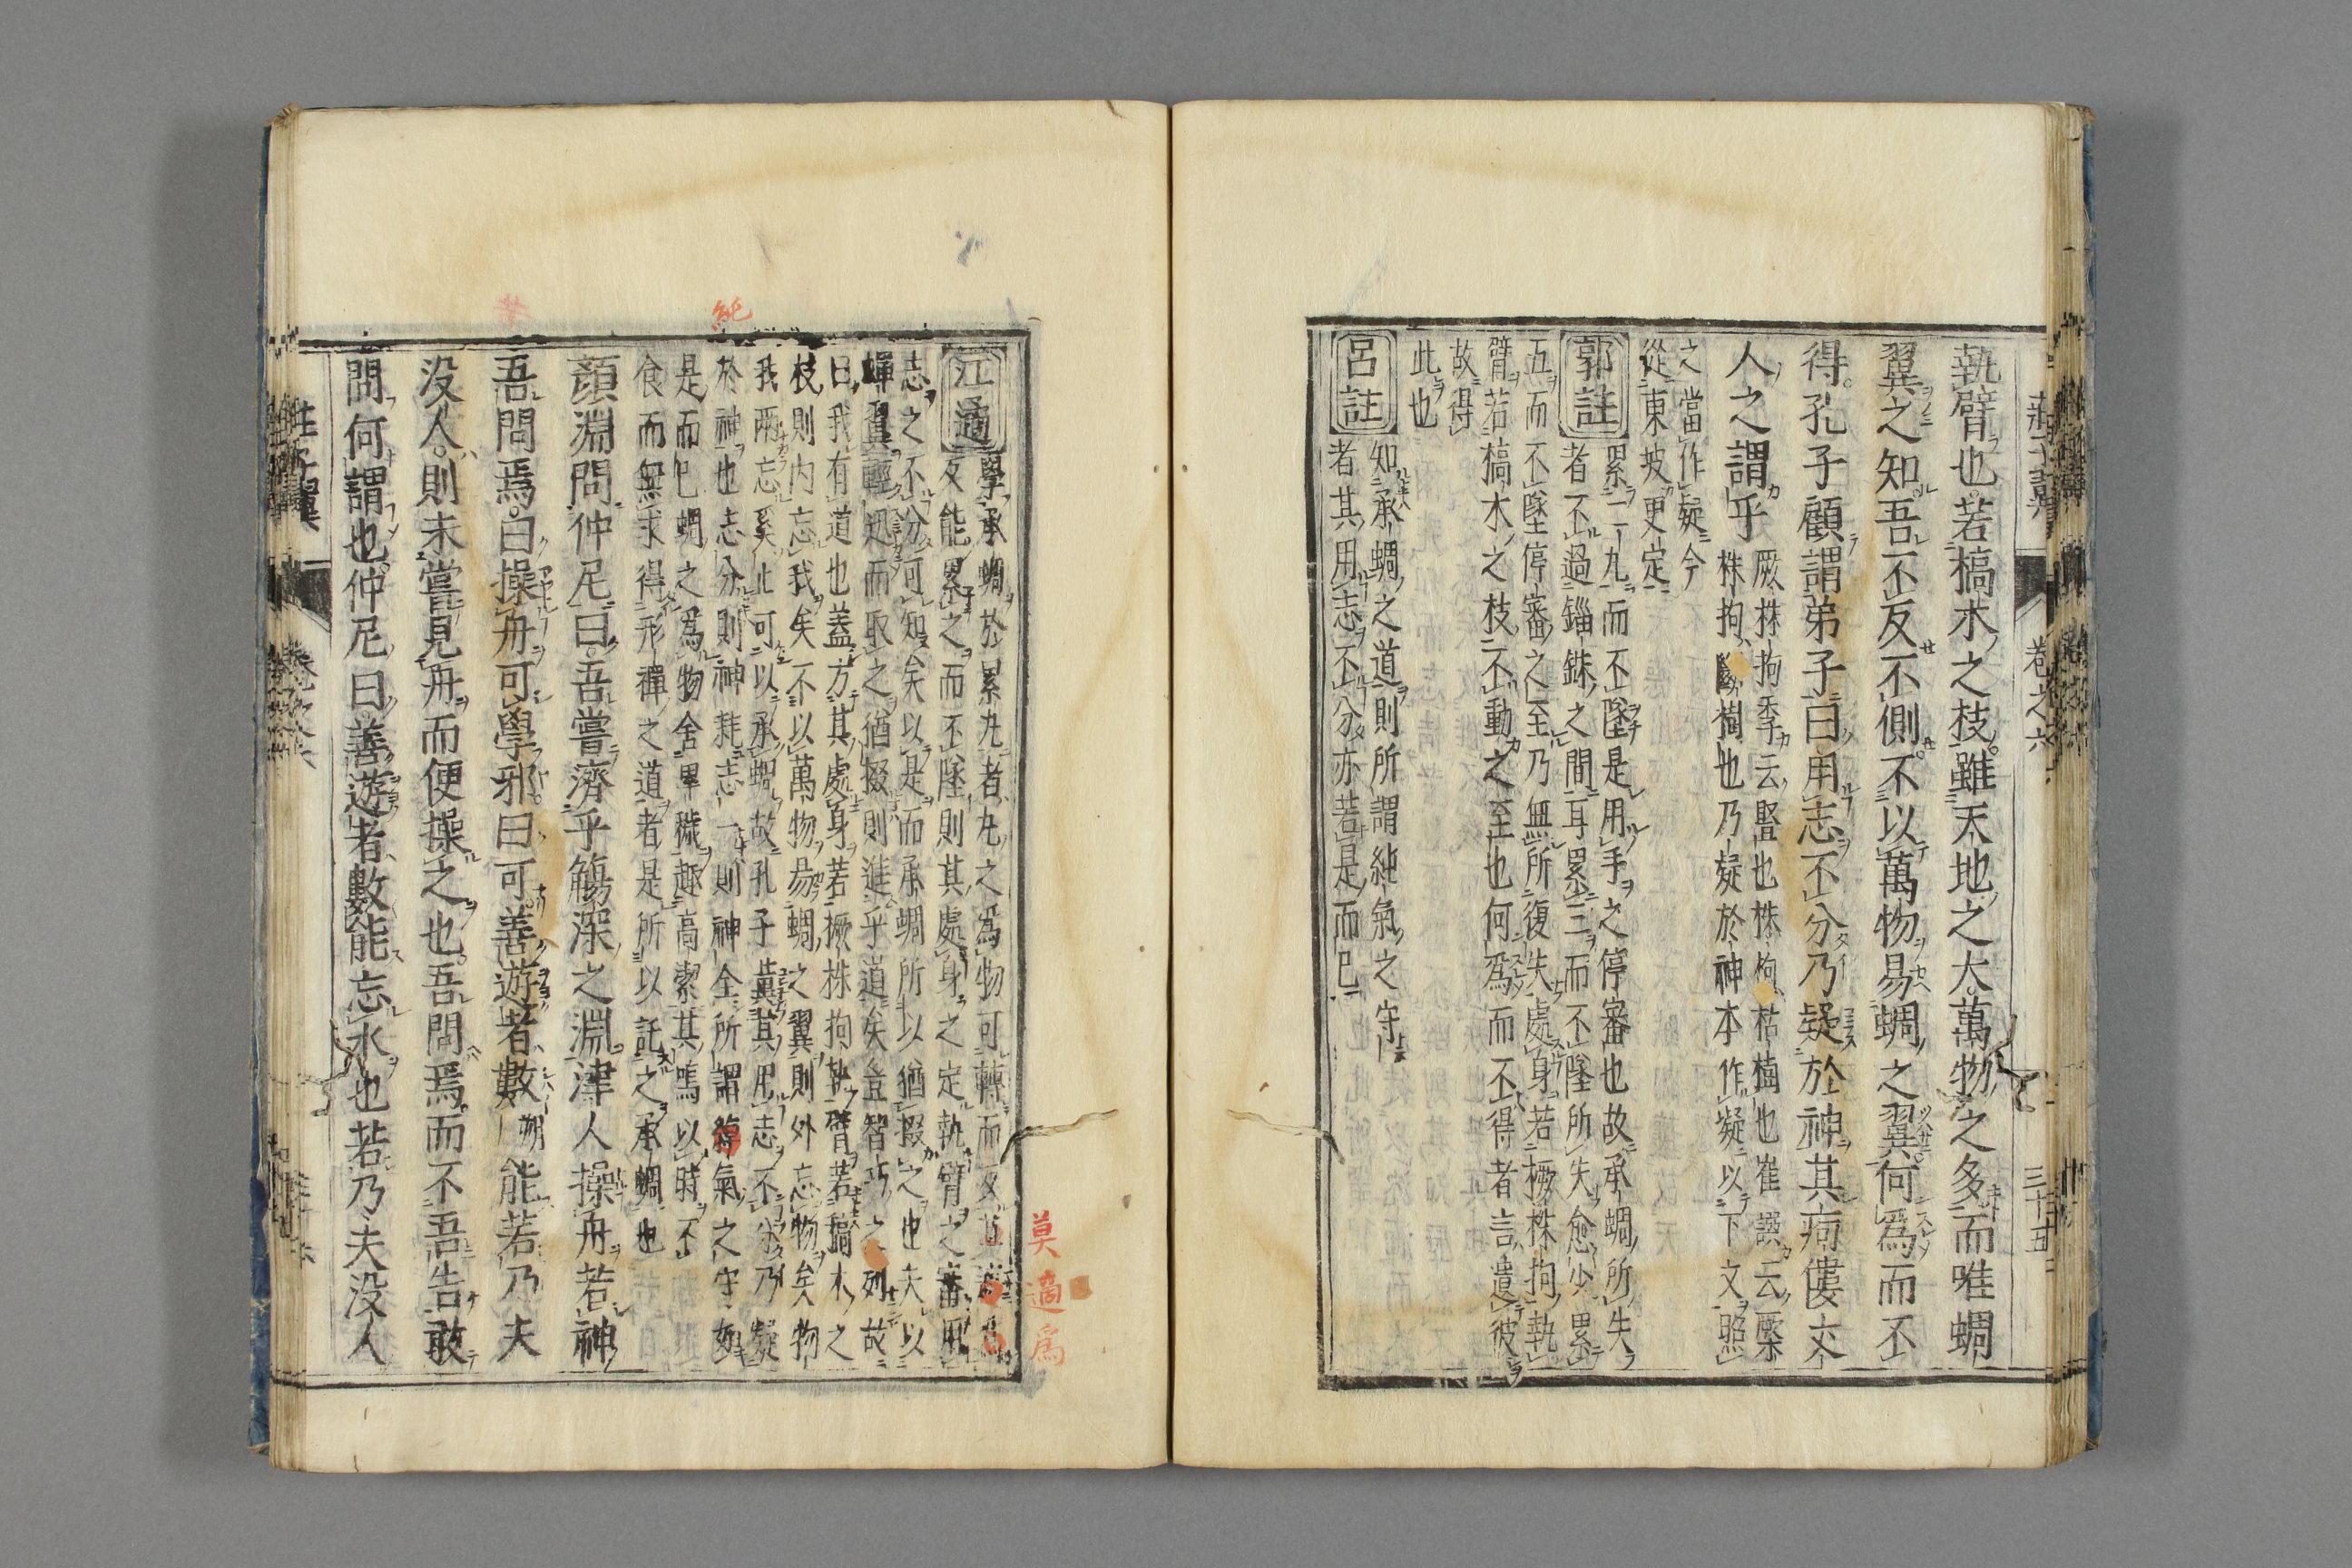 莊子翼
卷之六
三十五
執臂也若槁木之枝雖天地之大萬物之多而唯蜩
翼之知吾不反不側不以萬物易蜩之翼何爲而不
得孔子顧謂弟子曰用志不分乃疑於神其痀僂丈
人之謂乎
厥株拘李云竪也株拘枯樹也崔譔云橜
株拘斷樹也乃疑於神本作凝以下文照
之當作疑今
從東坡更定
郭註
累二丸而不墜是用手之停審也故承蜩所失
者不過錙銖之間耳累三而不墜所失愈少累
五而不墜停審之至乃無所復失處身若橛株拘執
臂若槁木之枝不動之至也何爲而不得者言遺彼
故得
此也
呂註
知承蜩之道則所謂純氣之守
者其用志不分亦若是而已
江遹
學承蜩於累丸者丸之爲物可轉而反
又能累之而不墜則其處身之定執臂之審用
志之不分可知矣以是而承蜩所以猶掇之也夫以
蟬翼輕迅而取之猶掇則進乎道矣豈智巧之列故
曰我有道也蓋方其處身若橛株拘執臂若槁木之
枝則内忘我矣不以萬物易蜩之翼則外忘物矣物
我兩忘奚止可以承蜩故孔子其用志不分乃凝
於神也志分則神耗志一則神全所謂氣之守如
是而已蜩之爲物舍卑穢趣高潔其鳴以時不
食而無求得形禪之道者是所以託之承蜩也
顔淵問仲尼曰吾嘗濟乎觴深之淵津人操舟若神
吾問焉曰操舟可學邪曰可善遊者數朔能若乃夫
没人則未嘗見舟而便操之也吾問焉而不吾告敢
問何謂也仲尼曰善遊者數能忘水也若乃夫没人
純
莫
適
爲
莊子翼